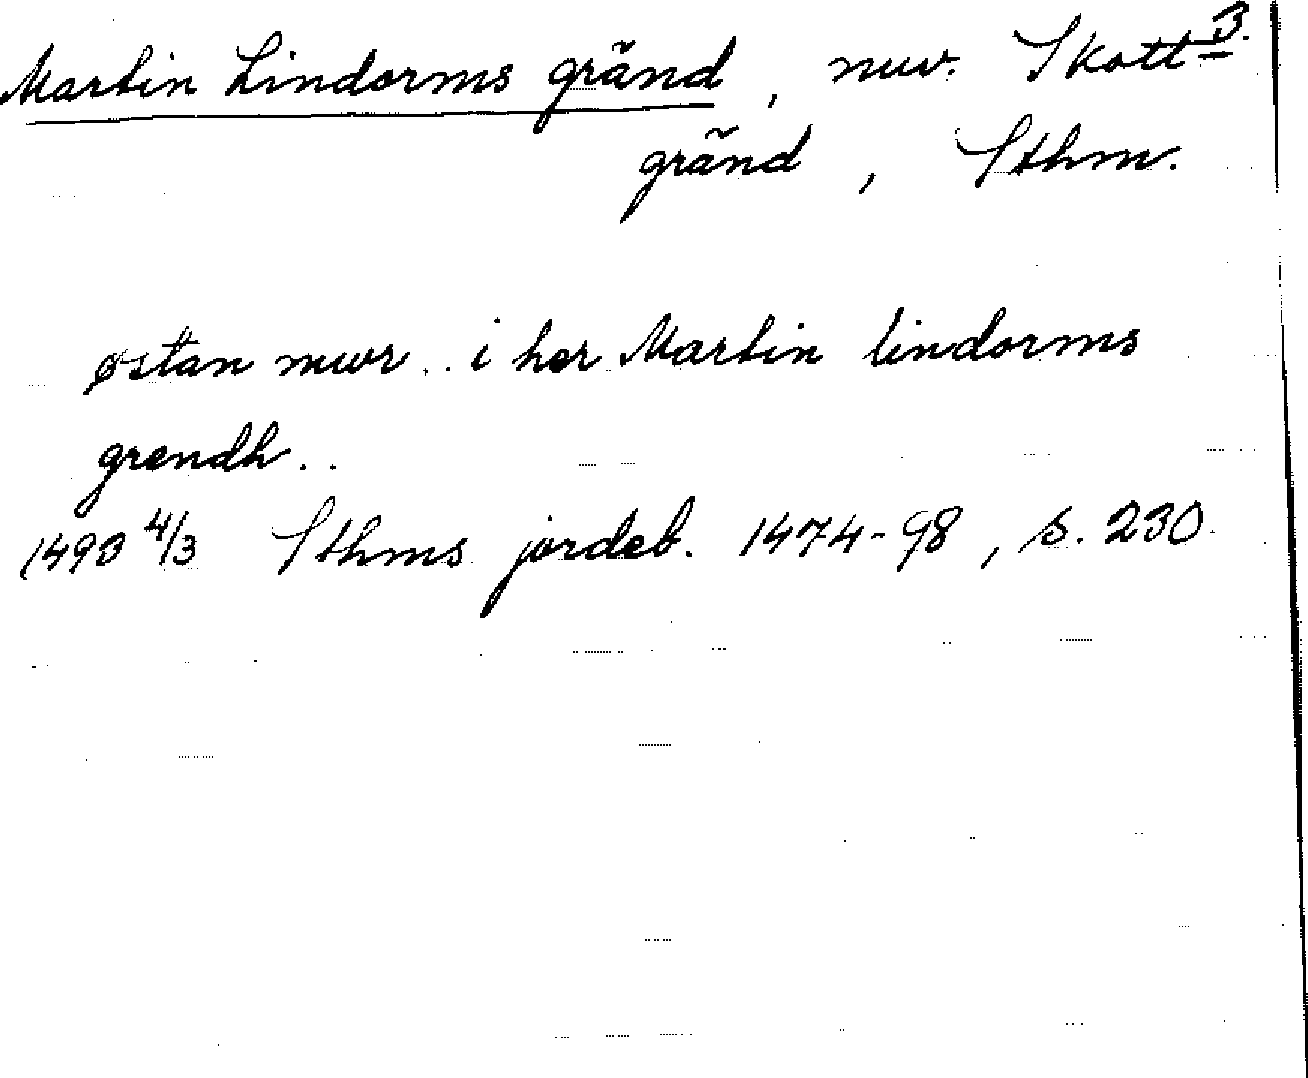 3.
Martin Lindorms gränd, nuv. Skott-
gränd, Sthm.
østan mwr .. i her Martin lindorms
grendh ..
1493 4/3 Sthms jordeb. 1474-98, s. 230